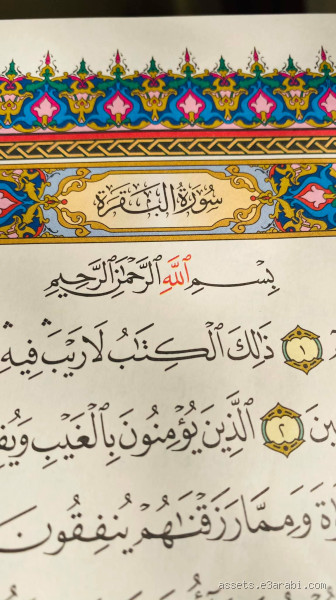 سُورَةُ الْبَقَرَةِ
بِسْمِ اللَّهِ الرَّحْمَٰنِ الرَّحِيمِ
١ ذَٰلِكَ الْكِتَابُ لَا رَيْبَ فِيهِ
٢ الَّذِينَ يُؤْمِنُونَ بِالْغَيْبِ
وَمِمَّا رَزَقْنَاهُمْ يُنفِقُونَ
assets.e3arabi.com